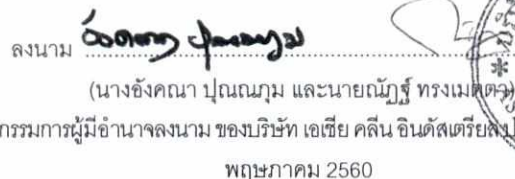 ลงนาม อังคณา ปุณณภุม
(นางอังคณา ปุณณภุม และนายณัฏฐ์ ทรงเมตตา)
กรรมการผู้มีอำนาจลงนาม ของบริษัท เอเชีย คลีน อินดัสเตรียล
พฤษภาคม 2560